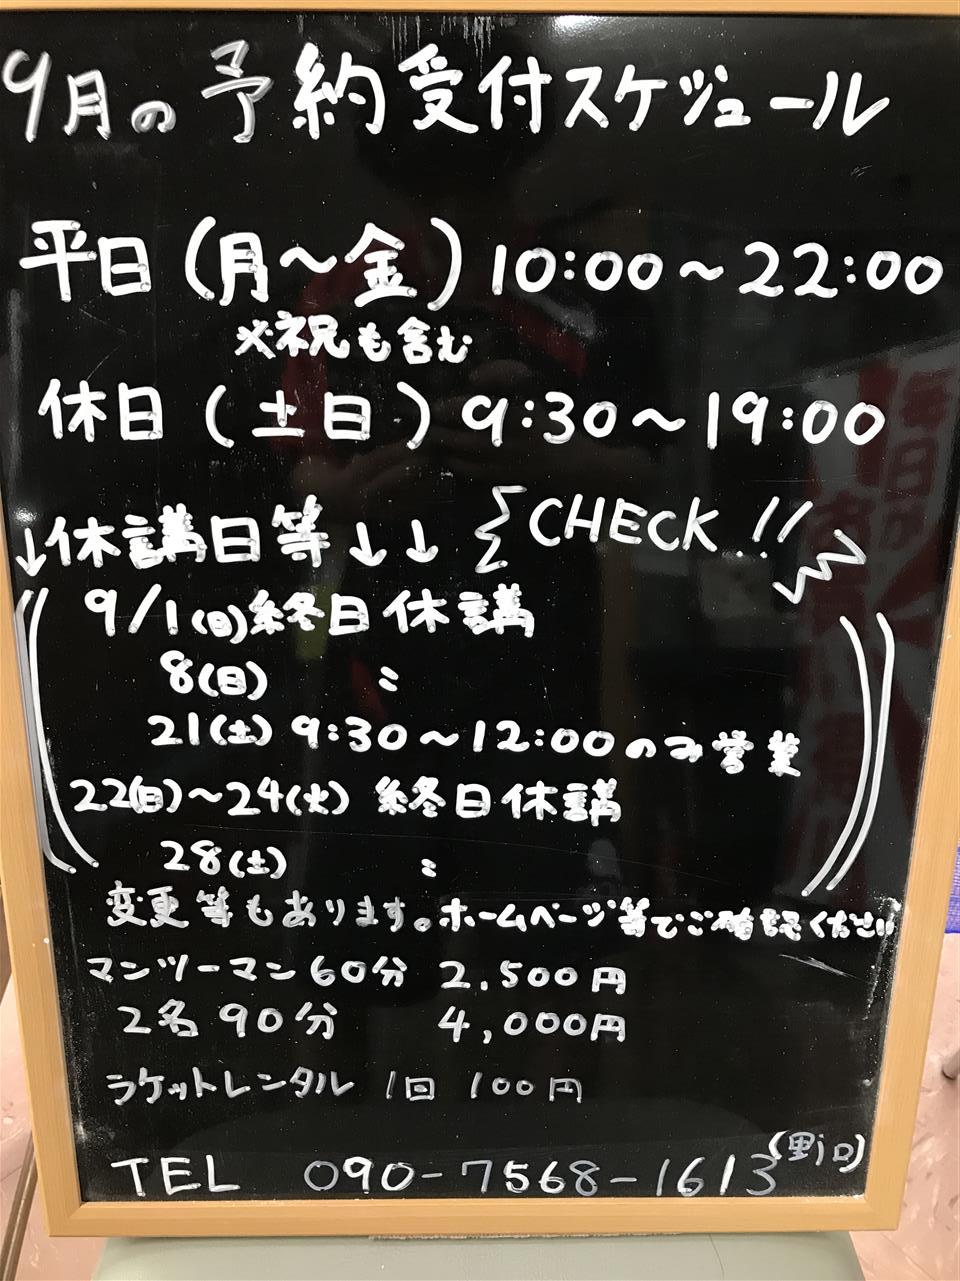 9月の予約受付スケジュール
平日(月～金)10:00～22:00
※祝も含む
休日(土日)9:30～19:00
↓休講日等↓↓ CHECK!!
9/1(日)終日休講
8(日) 〃
21(土)9:30～12:00のみ営業
22(日)～24(火)終日休講
28(土) 〃
変更等もあります。ホームページ等でご確認ください
マンツーマン60分 2,500円
2名90分 4,000円
ラケットレンタル 1回 100円
(野口)
TEL 090-7568-1613